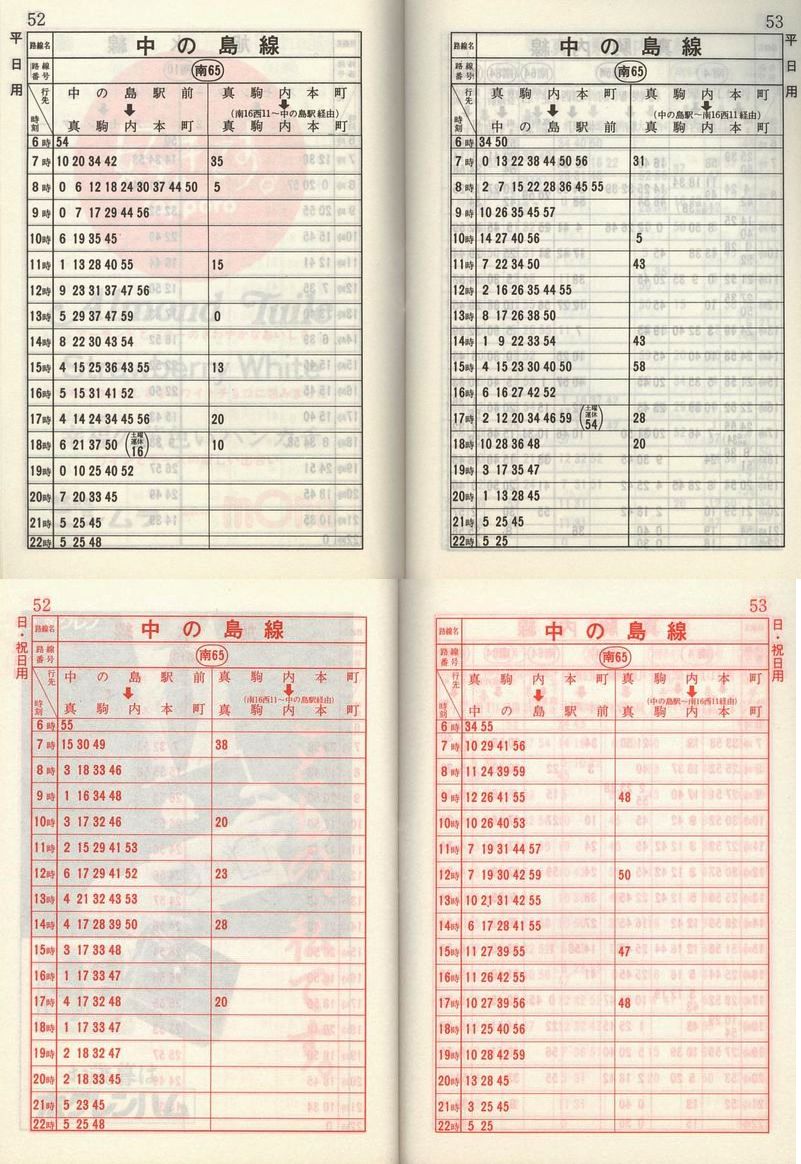 52
平日用
路線名 中の島線
路線番号 南65
行先 時刻 中の島駅前 ↓ 真駒内本町 真駒内本町 ↓ (南16西11～中の島駅経由) 真駒内本町
6時 54
7時 10 20 34 42 35
8時 0 6 12 18 24 30 37 44 50 5
9時 0 7 17 29 44 56
10時 6 19 35 45
11時 1 13 28 40 55 15
12時 9 23 31 37 47 56
13時 5 29 37 47 59 0
14時 8 22 30 43 54
15時 4 15 25 36 43 55 13
16時 5 15 31 41 52
17時 4 14 24 34 45 56 20
18時 6 21 37 50 (土曜運休16) 10
19時 0 10 25 40 52
20時 7 20 33 45
21時 5 25 45
22時 5 25 48
53
平日用
路線名 中の島線
路線番号 南65
行先 時刻 真駒内本町 ↓ 中の島駅前 真駒内本町 ↓ (中の島駅～南16西11経由) 真駒内本町
6時 34 50
7時 0 13 22 38 44 50 56 31
8時 2 7 15 22 28 36 45 55
9時 10 26 35 45 57
10時 14 27 40 56 5
11時 7 22 34 50 43
12時 2 16 26 35 44 55
13時 8 17 26 38 50
14時 1 9 22 33 54 43
15時 4 15 23 30 40 50 58
16時 6 16 27 42 52
17時 2 12 20 34 46 59 (土曜運休54) 28
18時 10 28 36 48 20
19時 3 17 35 47
20時 1 13 28 45
21時 5 25 45
22時 5 25
52
日・祝日用
路線名 中の島線
路線番号 南65
行先 時刻 中の島駅前 ↓ 真駒内本町 真駒内本町 ↓ (南16西11～中の島駅経由) 真駒内本町
6時 55
7時 15 30 49 38
8時 3 18 33 46
9時 1 16 34 48
10時 3 17 32 46 20
11時 2 15 29 41 53
12時 6 17 29 41 52 23
13時 4 21 32 43 53
14時 4 17 28 39 50 28
15時 3 17 33 48
16時 1 17 33 47
17時 4 17 32 48 20
18時 1 17 33 47
19時 2 18 32 47
20時 2 18 33 45
21時 5 23 45
22時 5 25 48
53
日・祝日用
路線名 中の島線
路線番号 南65
行先 時刻 真駒内本町 ↓ 中の島駅前 真駒内本町 ↓ (中の島駅～南16西11経由) 真駒内本町
6時 34 55
7時 10 29 41 56
8時 11 24 39 59
9時 12 26 41 55 48
10時 10 26 40 53
11時 7 19 31 44 57
12時 7 19 30 42 59 50
13時 10 21 31 42 55
14時 6 17 28 41 55
15時 11 27 39 55 47
16時 11 26 42 55
17時 10 27 39 56 48
18時 11 25 40 56
19時 10 28 42 59
20時 13 28 45
21時 3 25 45
22時 5 25